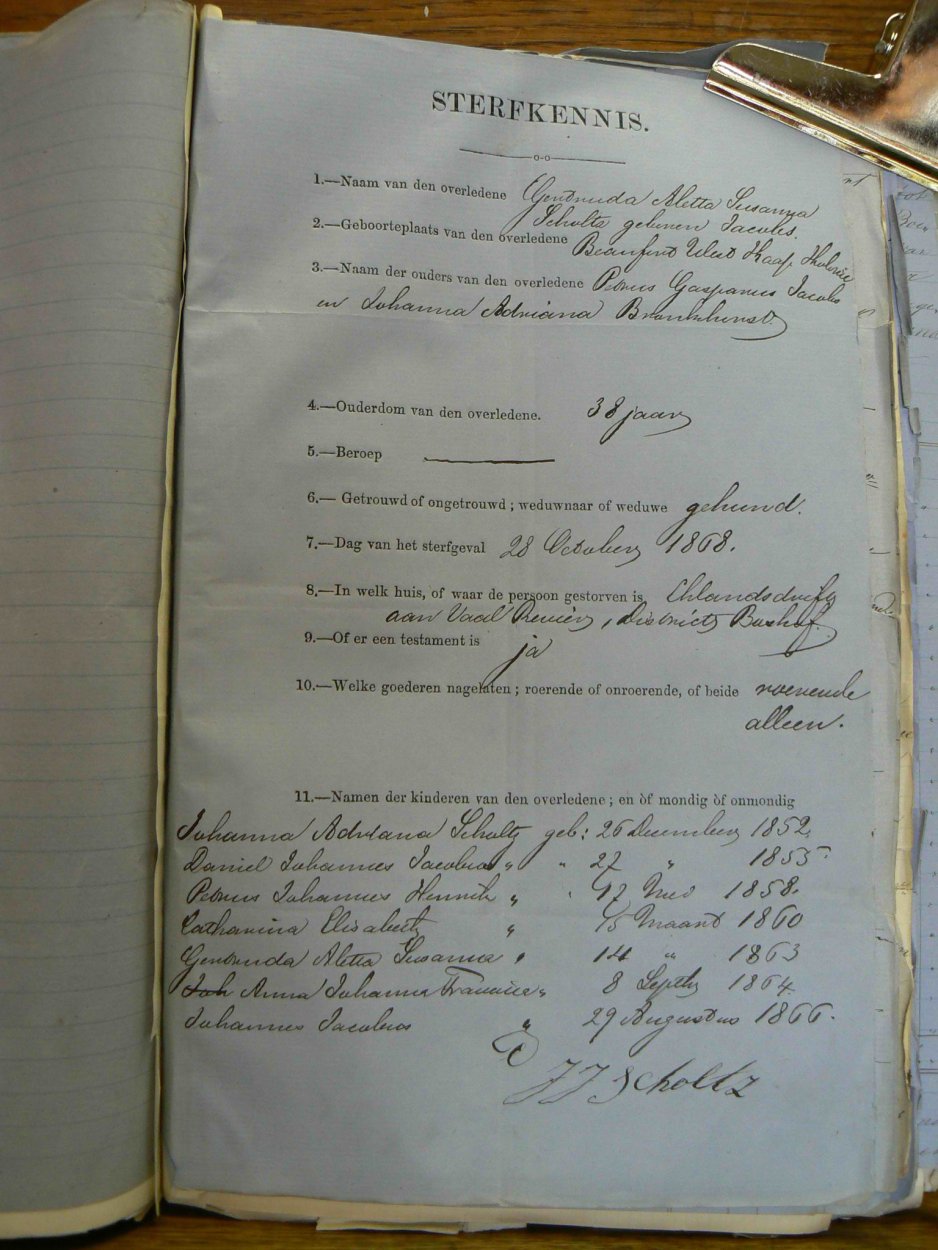 STERFKENNIS.
1.—Naam van den overledene Gertruida Aletta Susanna
Scholtz geboren Jacobs.
2.—Geboorteplaats van den overledene Beaufort West Kaap Kolonie
3.—Naam der ouders van den overledene Petrus Gasparus Jacobs
en Johanna Adriana Bronkhorst.
4.—Ouderdom van den overledene. 38 jaar
5.—Beroep
6.—Getrouwd of ongetrouwd; weduwnaar of weduwe gehuwd.
7.—Dag van het sterfgeval 28 October 1868.
8.—In welk huis, of waar de persoon gestorven is,
aan Vaal Revier, District Boshof.
9.—Of er een testament is ja
10.—Welke goederen nagelaten; roerende of onroerende, of beide roerende
alleen.
11.—Namen der kinderen van den overledene; en òf mondig òf onmondig
Johanna Adriana Scholtz geb: 26 December 1852.
Daniel Johannes Jacobus „ „ 27 „ 1855
Petrus Johannes Henrik „ „ 17 Mei 1858.
Catharina Elisabeth „ 15 Maart 1860
Gertruida Aletta Susanna „ 14 „ 1863
Joh Anna Johanna Francina „ 8 Septbr 1864.
Johannes Jacobus „ 29 Augustus 1866.
JJ Scholtz